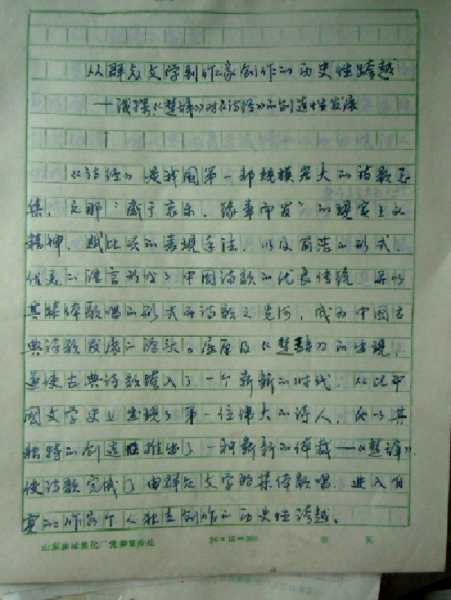 从群众文学到作家创作的历史性跨越
——浅探《楚辞》对《诗经》的创造性发展
《诗经》是我国第一部规模宏大的诗歌总
集，它那“感于哀乐，缘事而发”的现实主义
精神，赋比兴的表现手法，以及简洁的形式，
优美的语言形成了中国诗歌的优良传统，并以
其集体歌唱的形式为诗歌之先河，成为中国古
典诗歌发展的源头。屈原及《楚辞》的出现，
遂使古典诗歌跨入了一个崭新的时代，从此中
国文学史上出现了第一位伟大的诗人，他以其
独特的创造推出了一种崭新的体裁——《楚辞》，
使诗歌完成了由群众文学的集体歌唱，进入自
觉的作家个人独立创作的历史性跨越。
24×15=360